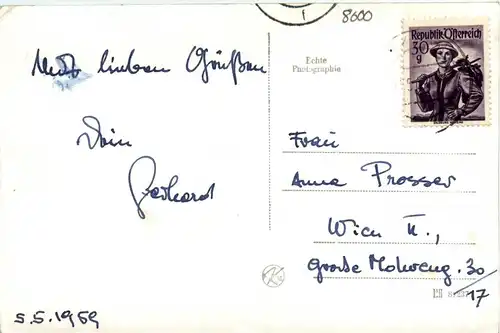 8600
Republik Österreich
30
g
Echte
Photographie
Mit lieben Grüßen
Dein
Gerhard
5.5.1959
Frau
Anna Prosser
Wien II.,
Große Mohreng. 30/17